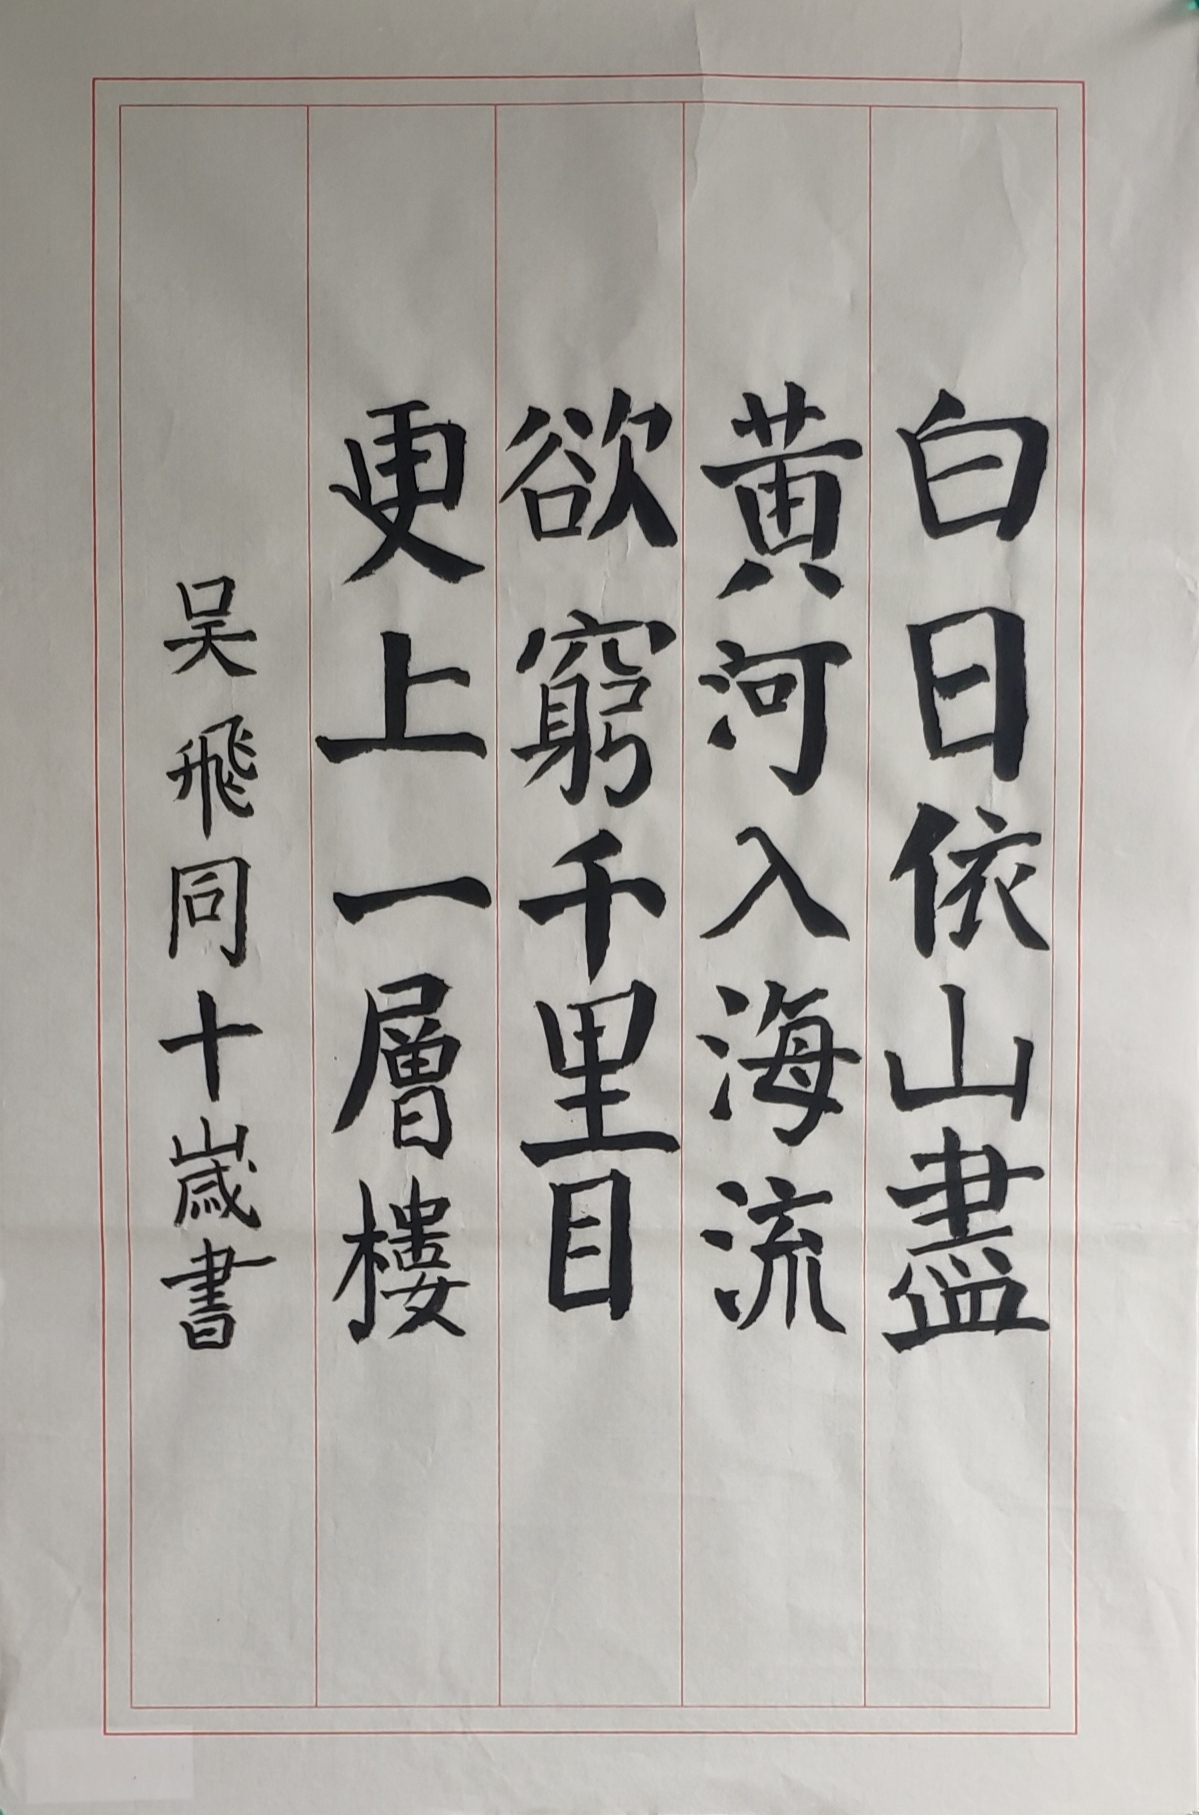 白日依山盡
黃河入海流
欲窮千里目
更上一層樓
吴飛同十歲書